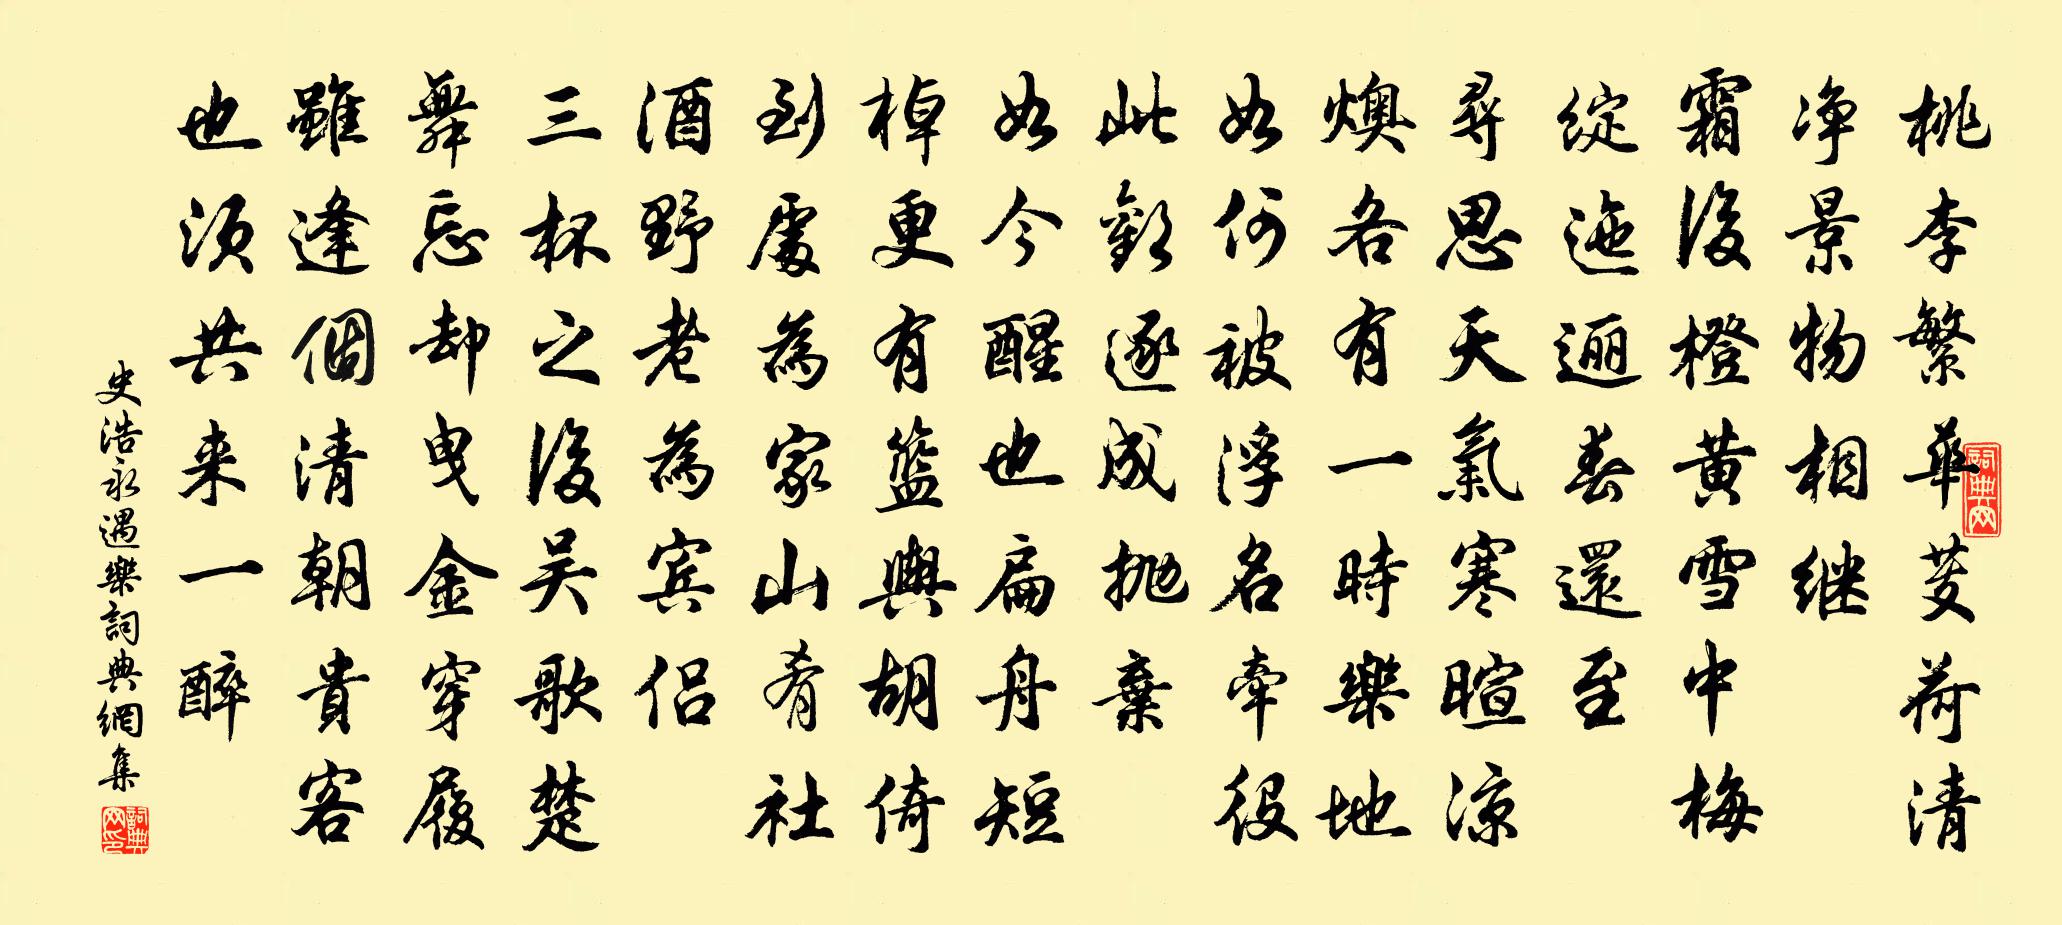 桃李繁華芰荷清
净景物相继
霜後橙黄雪中梅
綻迤逦春還至
尋思天氣寒暄凉
燠各有一時樂地
如何被浮名牽役
此歡逐成抛棄
如今醒也扁舟短
棹更有籃輿胡倚
到處為家山肴社
酒野老為賓侣
三杯之後吴歌楚
舞忘却曳金穿履
雖逢個清朝貴客
也须共来一醉
史浩永遇樂詞典網集
詞典网
詞典网印